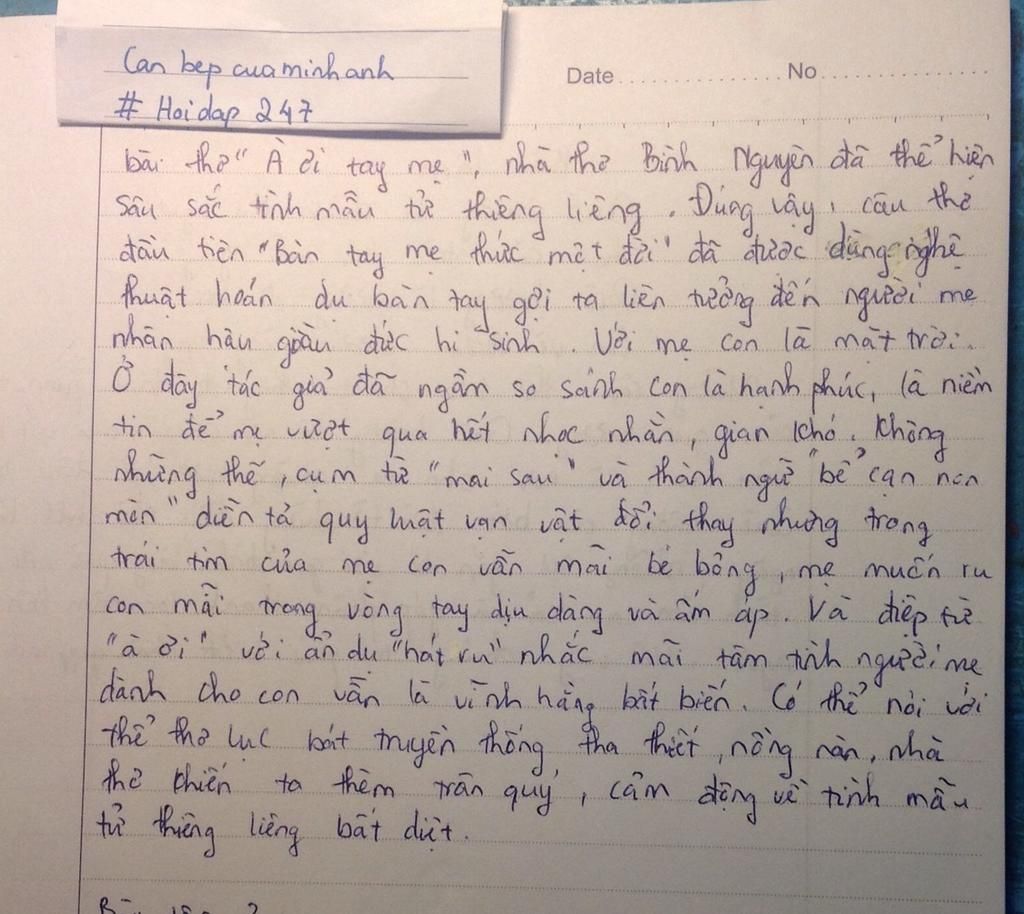 Can bep cua minh anh
# Hoidap 247
Date No
bài thơ "À ơi tay mẹ", nhà thơ Bình Nguyên đã thể hiện
sâu sắc tình mẫu tử thiêng liêng. Đúng vậy, câu thơ
đầu tiên "Bàn tay mẹ thức một đời" đã được dùng nghệ
thuật hoán dụ bàn tay gợi ta liên tưởng đến người mẹ
nhân hậu giàu đức hi sinh. Với mẹ con là mặt trời.
Ở đây tác giả đã ngầm so sánh con là hạnh phúc, là niềm
tin để mẹ vượt qua hết nhọc nhằn, gian khó. Không
những thế, cụm từ "mai sau" và thành ngữ "bể cạn non
mòn" diễn tả quy luật vạn vật đổi thay nhưng trong
trái tim của mẹ con vẫn mãi bé bỏng, mẹ muốn ru
con mãi trong vòng tay dịu dàng và ấm áp. Và điệp từ
"à ơi" với ẩn dụ "hát ru" nhắc mãi tâm tình người mẹ
dành cho con vẫn là vĩnh hằng bất biến. Có thể nói với
thể thơ lục bát truyền thống, tha thiết, nồng nàn, nhà
thơ khiến ta thêm trân quý, cảm động về tình mẫu
tử thiêng liêng bất diệt.